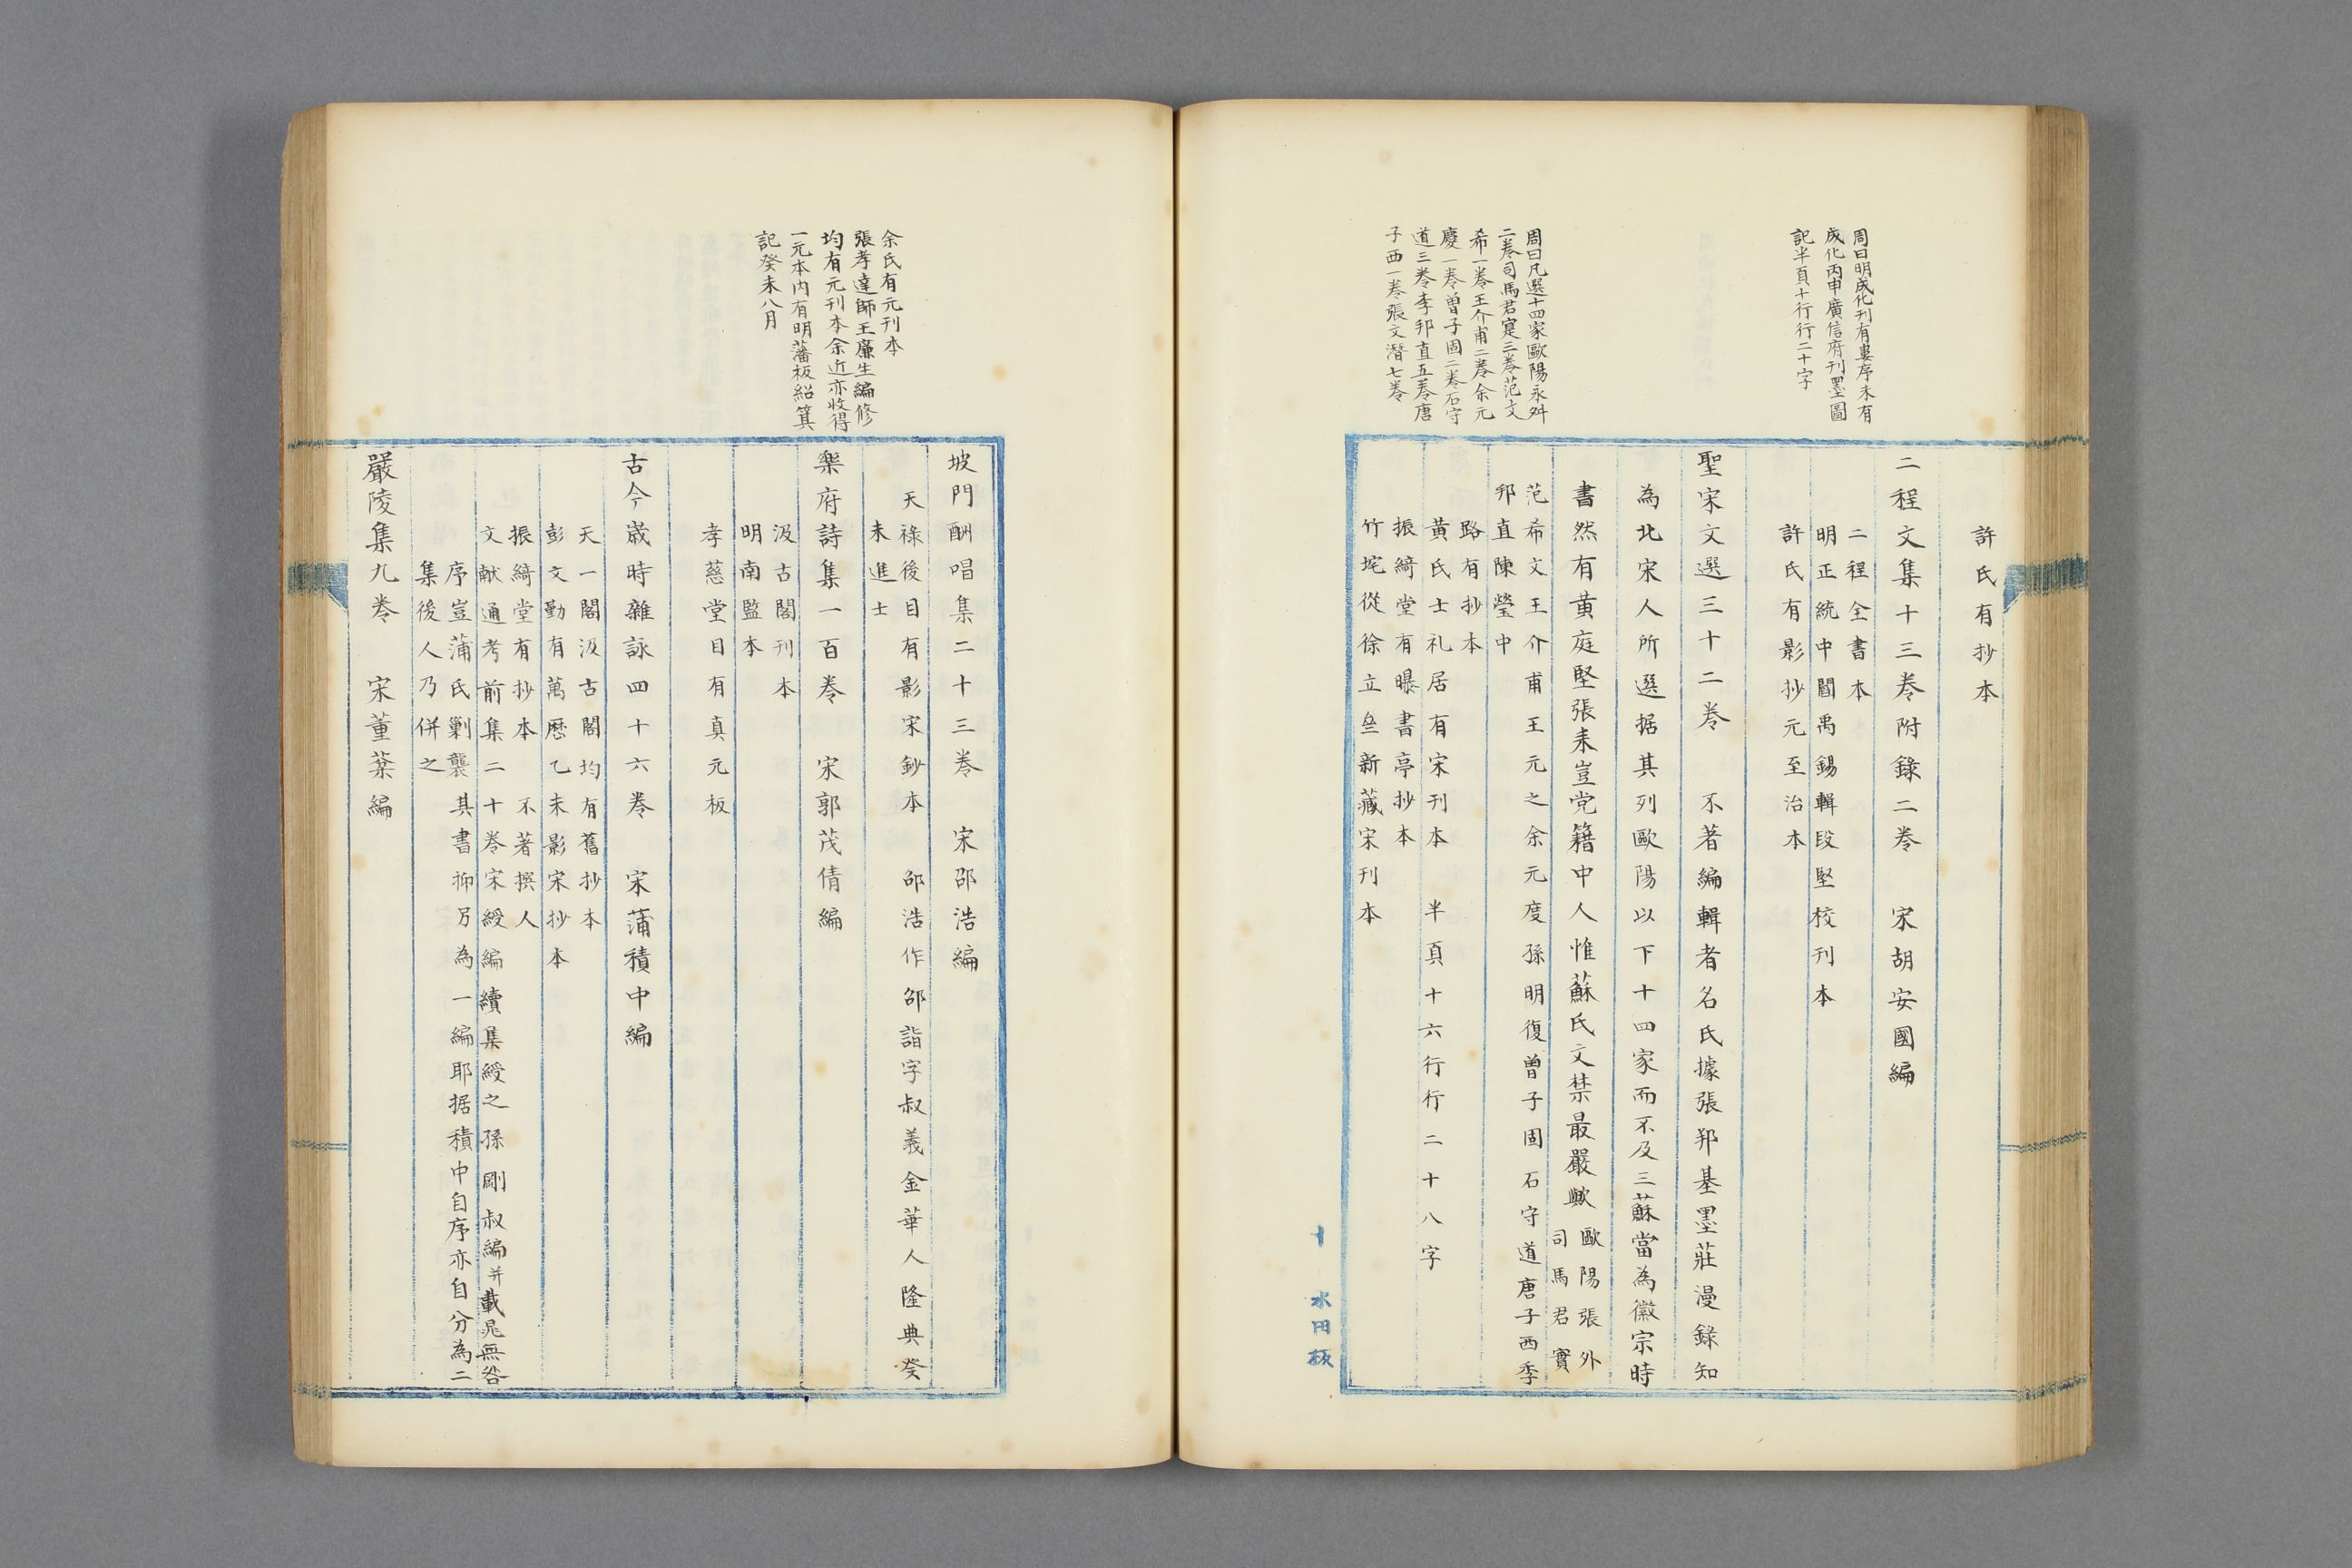 周曰明成化刊有婁序未有
成化丙申廣信府刊墨圖
記半頁十行行二十字
周曰凡選十四家歐陽永叔
二卷司馬君寔三卷范文
希一卷王介甫二卷余元
慶一卷曾子固二卷石守
道三卷李邦直五卷唐
子西一卷張文潛七卷
許氏有抄本
二程文集十三卷附錄二卷　宋胡安國編
二程全書本
明正統中閻禹錫輯段堅校刊本
許氏有影抄元至治本
聖宋文選三十二卷　不著編輯者名氏據張邦基墨莊漫錄知
為北宋人所選据其列歐陽以下十四家而不及三蘇當為徽宗時
書然有黃庭堅張耒豈党籍中人惟蘇氏文禁最嚴歟
歐陽張外
司馬君實
范希文王介甫王元之余元度孫明復曾子固石守道唐子西季
邦直陳瑩中
路有抄本
黃氏士礼居有宋刊本　半頁十六行行二十八字
振綺堂有曝書亭抄本
竹垞從徐立㕘新藏宋刊本
十　水円板
余氏有元刊本
張孝達師王廉生編修
均有元刊本余近亦收得
一元本内有明藩板紹箕
記癸未八月
坡門酬唱集二十三卷　宋邵浩編
天祿後目有影宋鈔本　邵浩作邵諧字叔義金華人隆典癸
未進士
樂府詩集一百卷　宋郭茂倩編
汲古閣刊本
明南監本
孝慈堂目有真元板
古今歲時雜詠四十六卷　宋蒲積中編
天一閣汲古閣均有舊抄本
彭文勤有萬歷乙未影宋抄本
振綺堂有抄本　不著撰人
文献通考前集二十卷宋綬編續集綬之孫剛叔編并載晁無咎
序豈蒲氏剿襲其書抑乃為一編耶据積中自序亦自分為二
集後人乃併之
嚴陵集九卷　宋董棻編